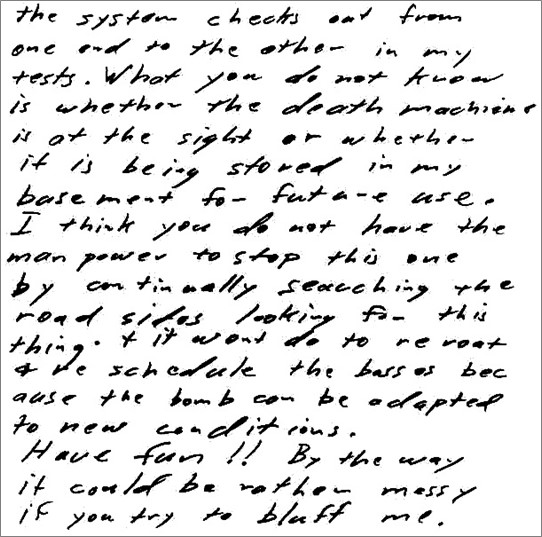 the system checks out from
one end to the other in my
tests. What you do not know
is whether the death machine
is at the sight or whether
it is being stored in my
basement for future use.
I think you do not have the
man power to stop this one
by continually searching the
road sides looking for this
thing. & it wont do to re roat
& re schedule the busses bec
ause the bomb can be adapted
to new conditions.
Have fun!! By the way
it could be rather messy
if you try to bluff me.